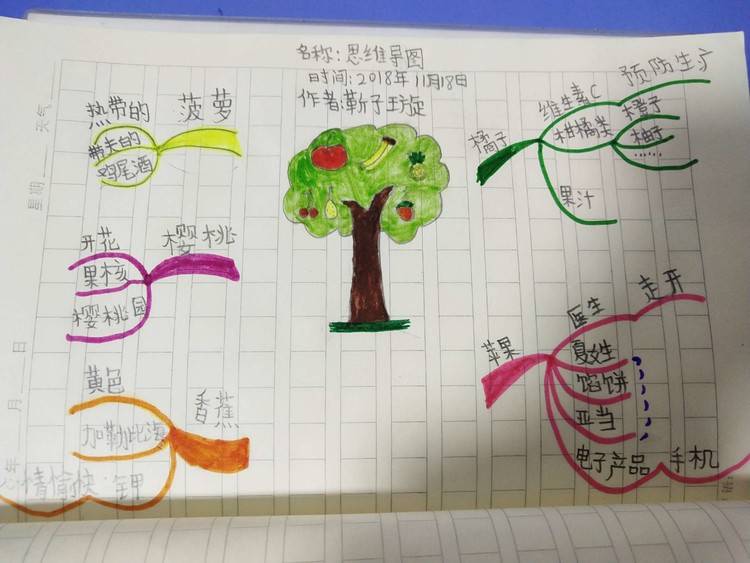 名称:思维导图
时间:2018年11月18日
作者:靳子琁
热带的
菠萝
带夫的
鸡尾酒
开花
樱桃
果核
樱桃园
黄色
香蕉
加勒比海
心情愉快
钾
橘子
维生素C
预防生疒
柑橘类
橙子
柚子
......
果汁
苹果
医生
走开
夏娃
馅饼
亚当
电子产品
手机
天气
星期
日
月
年